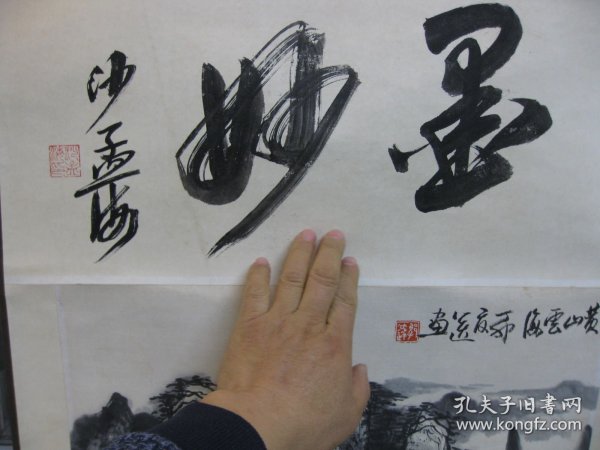 墨妙
沙孟海
黄山雲海
画
孔夫子旧书网
www.kongfz.com